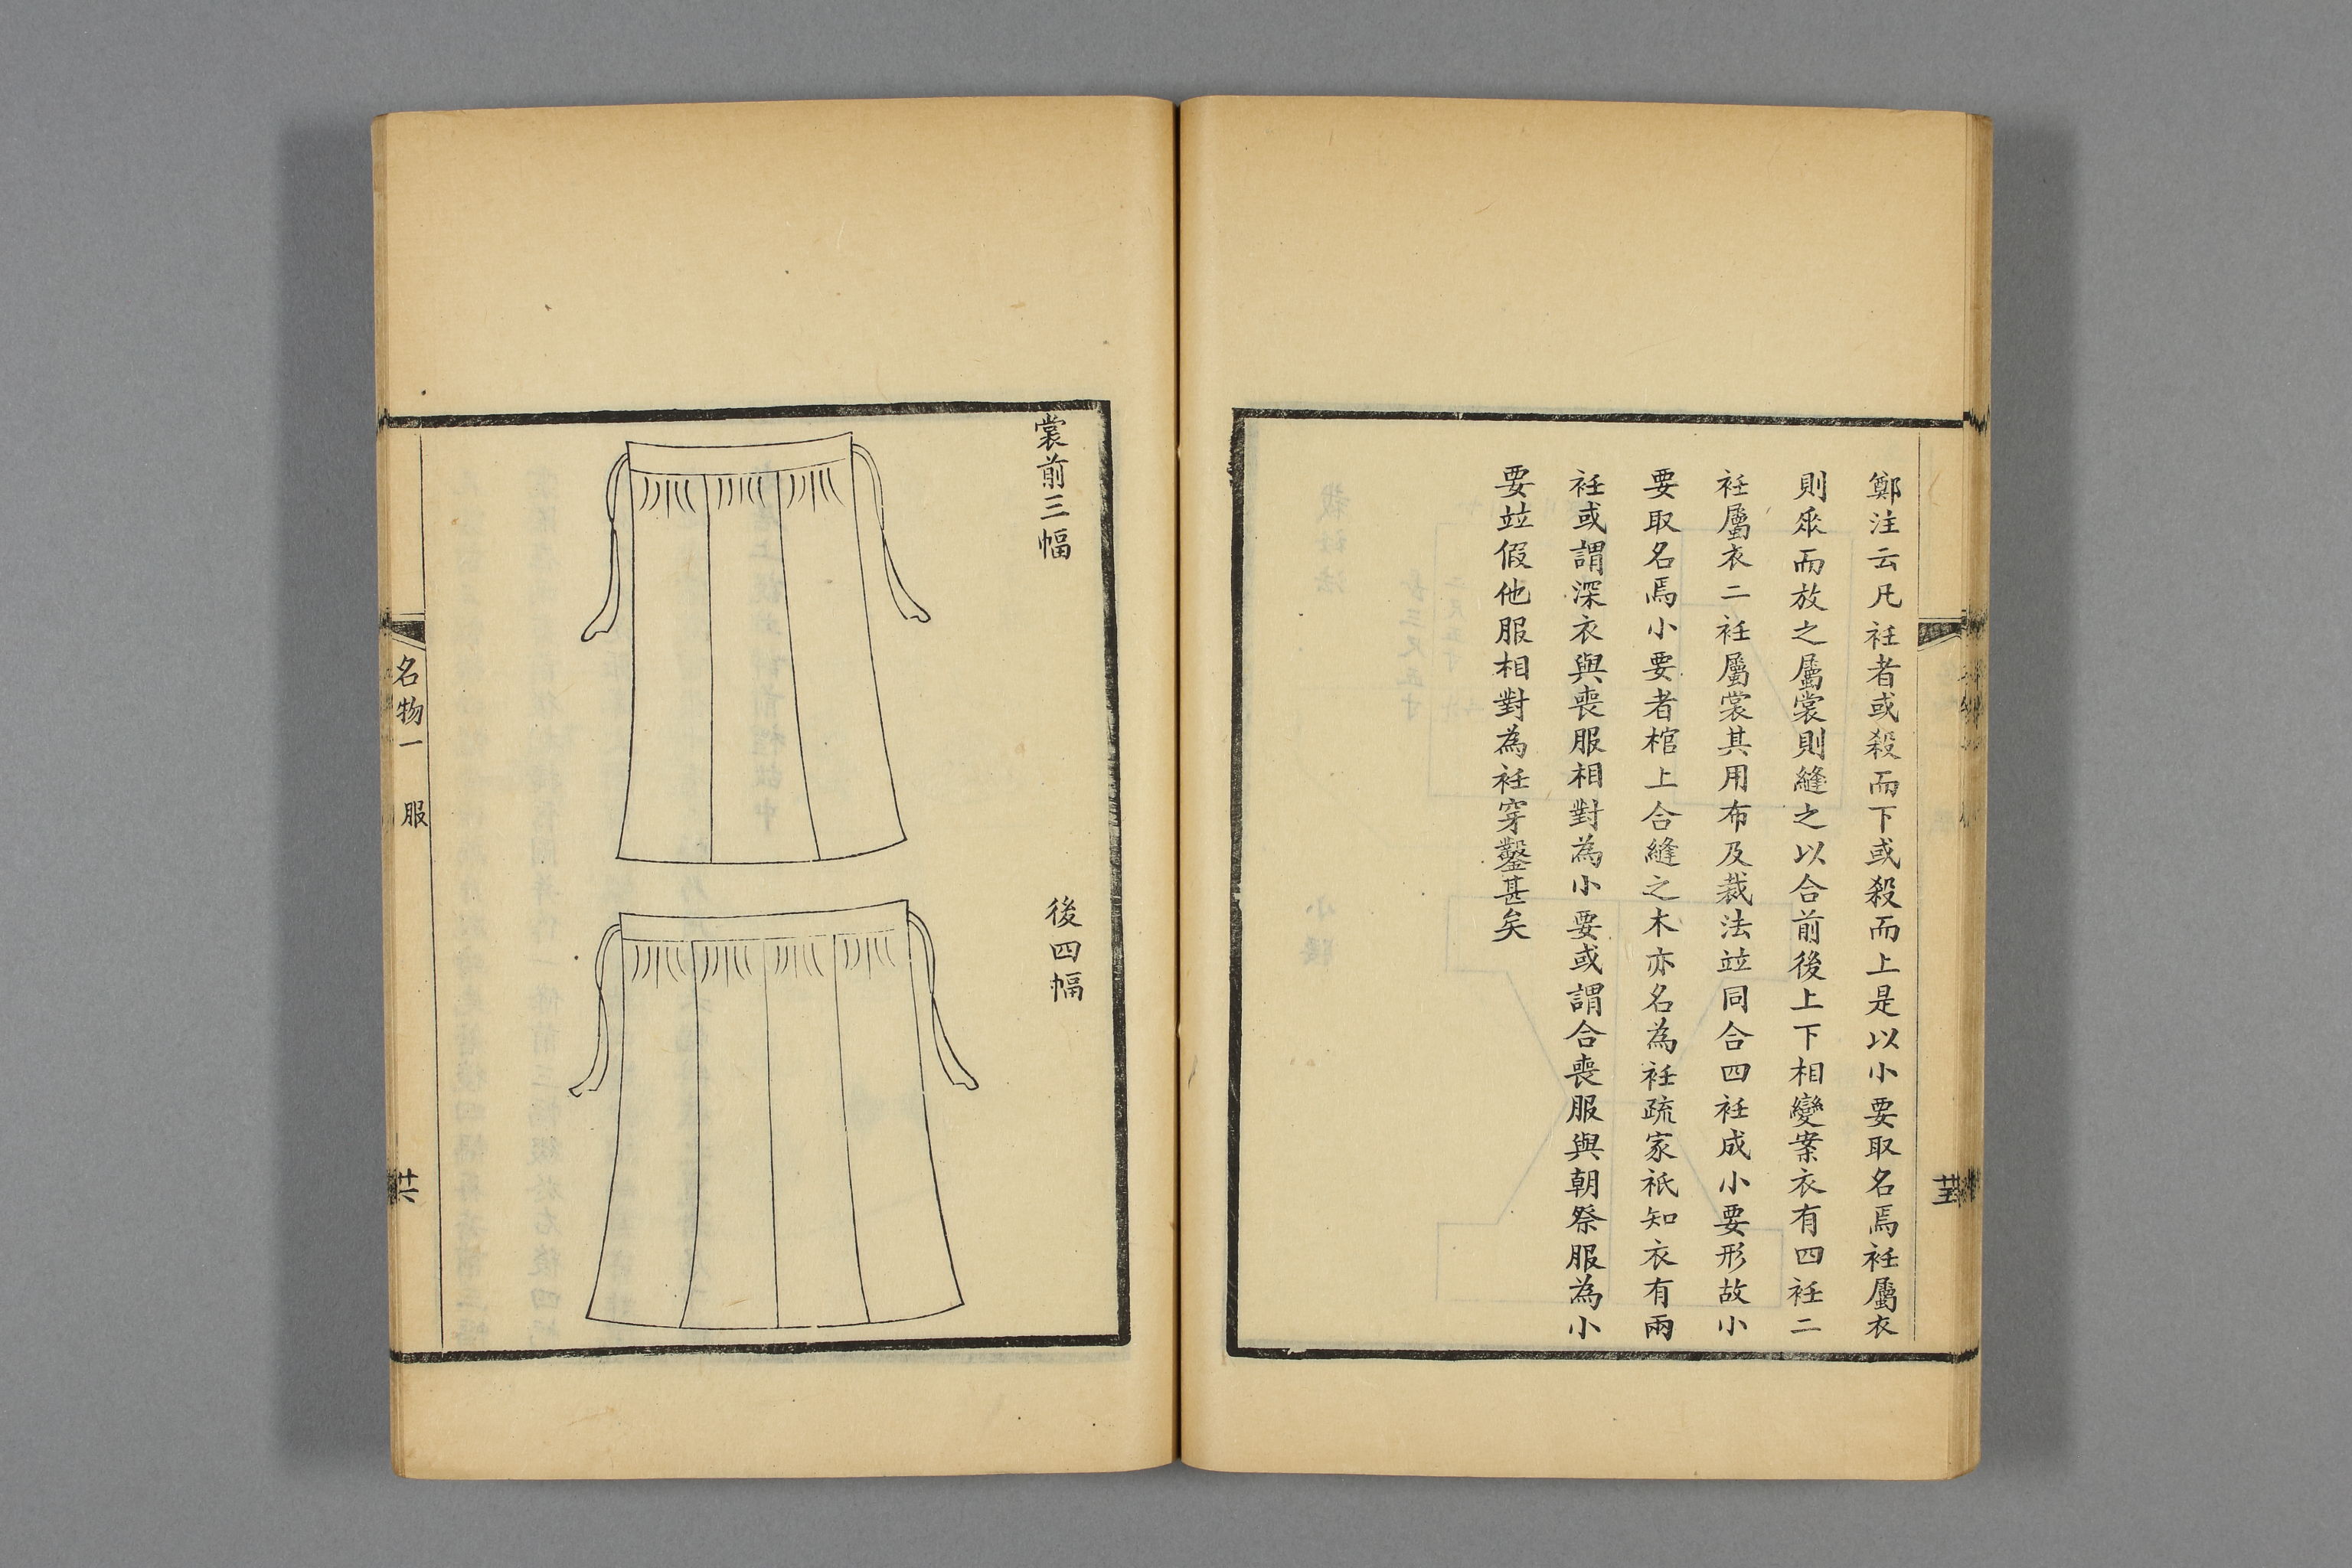 鄭注云凡衽者或殺而下或殺而上是以小要取名焉衽屬衣
則𠂹而放之屬裳則縫之以合前後上下相變案衣有四衽二
衽屬衣二衽屬裳其用布及裁法竝同合四衽成小要形故小
要取名焉小要者棺上合縫之木亦名為衽疏家祇知衣有兩
衽或謂深衣與喪服相對為小要或謂合喪服與朝祭服為小
要竝假他服相對為衽穿鑿甚矣
裳前三幅
後四幅
名物一 服